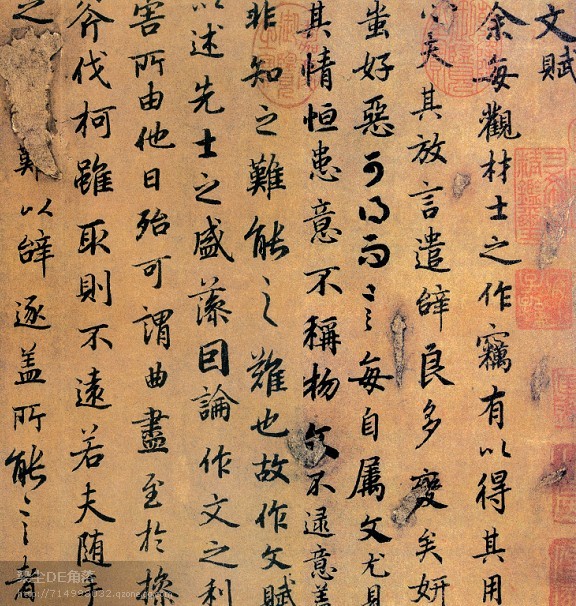 文賦
余每觀材士之作竊有以得其用
心夫其放言遣辭良多變矣妍
蚩好惡可得而言每自属文尤見
其情恒患意不稱物文不逮意盖
非知之難能之難也故作文賦
以述先士之盛藻因論作文之利
害所由他日殆可謂曲盡至於操
斧伐柯雖取則不遠若夫随手
之難以辭逐盖所能言者
尘DE角落